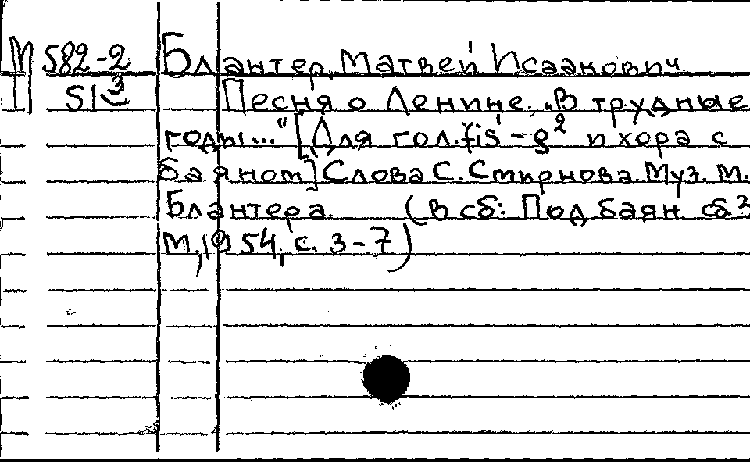 М 582-2 Блантер, Матвей Исаакович
П 513 Песня о Ленине. „В трудные
годы..." [Для гол. fis' - g² и хора с
баяном] Слова С. Смирнова Муз. М.
Блантера. (В сб: Под баян сб 3
М, 1954, с. 3-7)